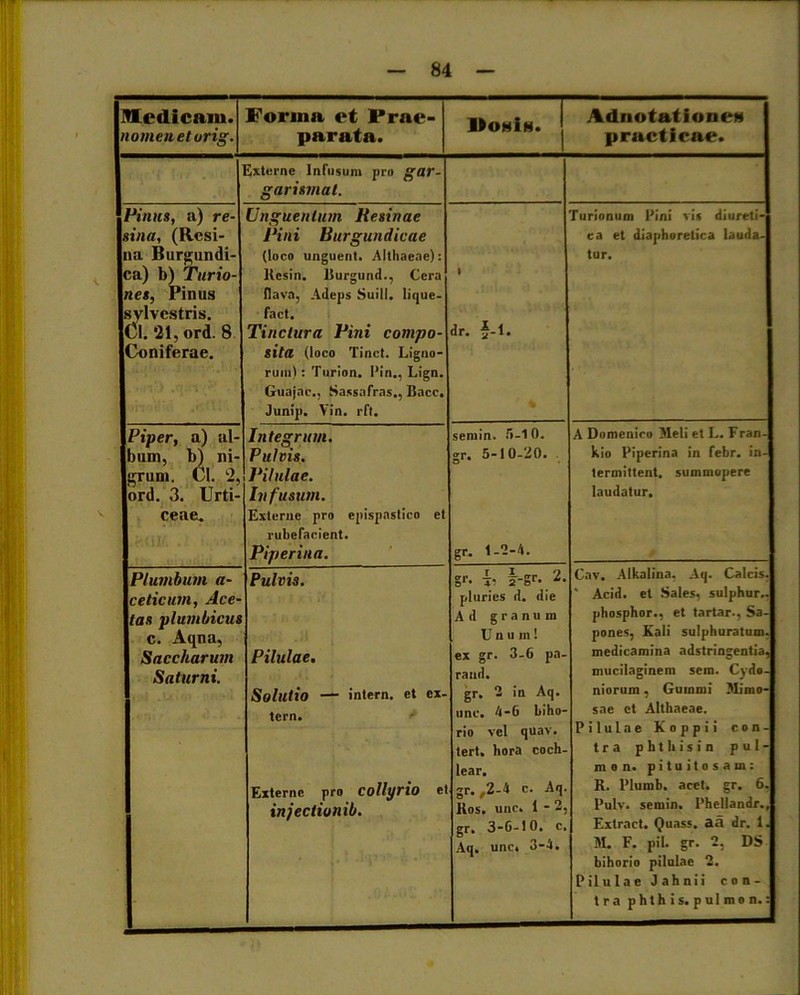 — 84 —
Medicam.
nomen et orig.
Forma et Prae-
parata.
Dosis.
Adnotationes
practicae.
Externe Infusum pro gar-
garismat.
Pinus, a) re-
sina, (Resi-
na Burgundi-
ca) b) Turio-
nes, Pinus
sylvestris.
Cl. 21, ord. 8
Coniferae.
Unguentum Resinae
Pini Burgundicae
(loco unguent. Althaeae):
Resin. Burgund., Cera
flava, Adeps Suill. lique-
fact.
Tinctura Pini compo-
sita (loco Tinct. Ligno-
rum): Turion. Pin., Lign.
Guajac., Sassafras., Bacc.
Junip. Vin. rft.
dr. ½-1.
Turionum Pini vis diureti-
ca et diaphoretica lauda-
tur.
Piper, a) al-
bum, b) ni-
grum. Cl. 2,
ord. 3. Urti-
ceae.
Integrum.
Pulvis.
Pilulae.
Infusum.
Externe pro epispastico et
rubefacient.
Piperina.
semin. 5-10.
gr. 5-10-20.
gr. 1-2-4.
A Domenico Meli et L. Fran-
kio Piperina in febr. in-
termittent. summopere
laudatur.
Plumbum a-
ceticum, Ace-
tas plumbicus
c. Aqna,
Saccharum
Saturni.
Pulvis.
Pilulae.
Solutio — intern. et ex-
tern.
Externe pro collyrio et
injectionib.
gr. ¼, ½-gr. 2.
pluries d. die
Ad granum
Unum!
ex gr. 3-6 pa-
rand.
gr. 2 in Aq.
unc. 4-6 biho-
rio vel quav.
tert. hora coch-
lear.
gr. 2-4 c. Aq.
Ros. unc. 1-2,
gr. 3-6-10. c.
Aq. unc. 3-4.
Cav. Alkalina, Aq. Calcis,
Acid. et Sales, sulphur.,
phosphor., et tartar., Sa-
pones, Kali sulphuratum,
medicamina adstringentia,
mucilaginem sem. Cydo-
niorum, Gummi Mimo-
sae et Althaeae.
Pilulae Koppii con-
tra phthisin pul-
mon. pituitosam:
R. Plumb. acet. gr. 6,
Pulv. semin. Phellandr.,
Extract. Quass. aā dr. 1.
M. F. pil. gr. 2, DS
bihorio pilulae 2.
Pilulae Jahnii con-
tra phthis. pulmon.: